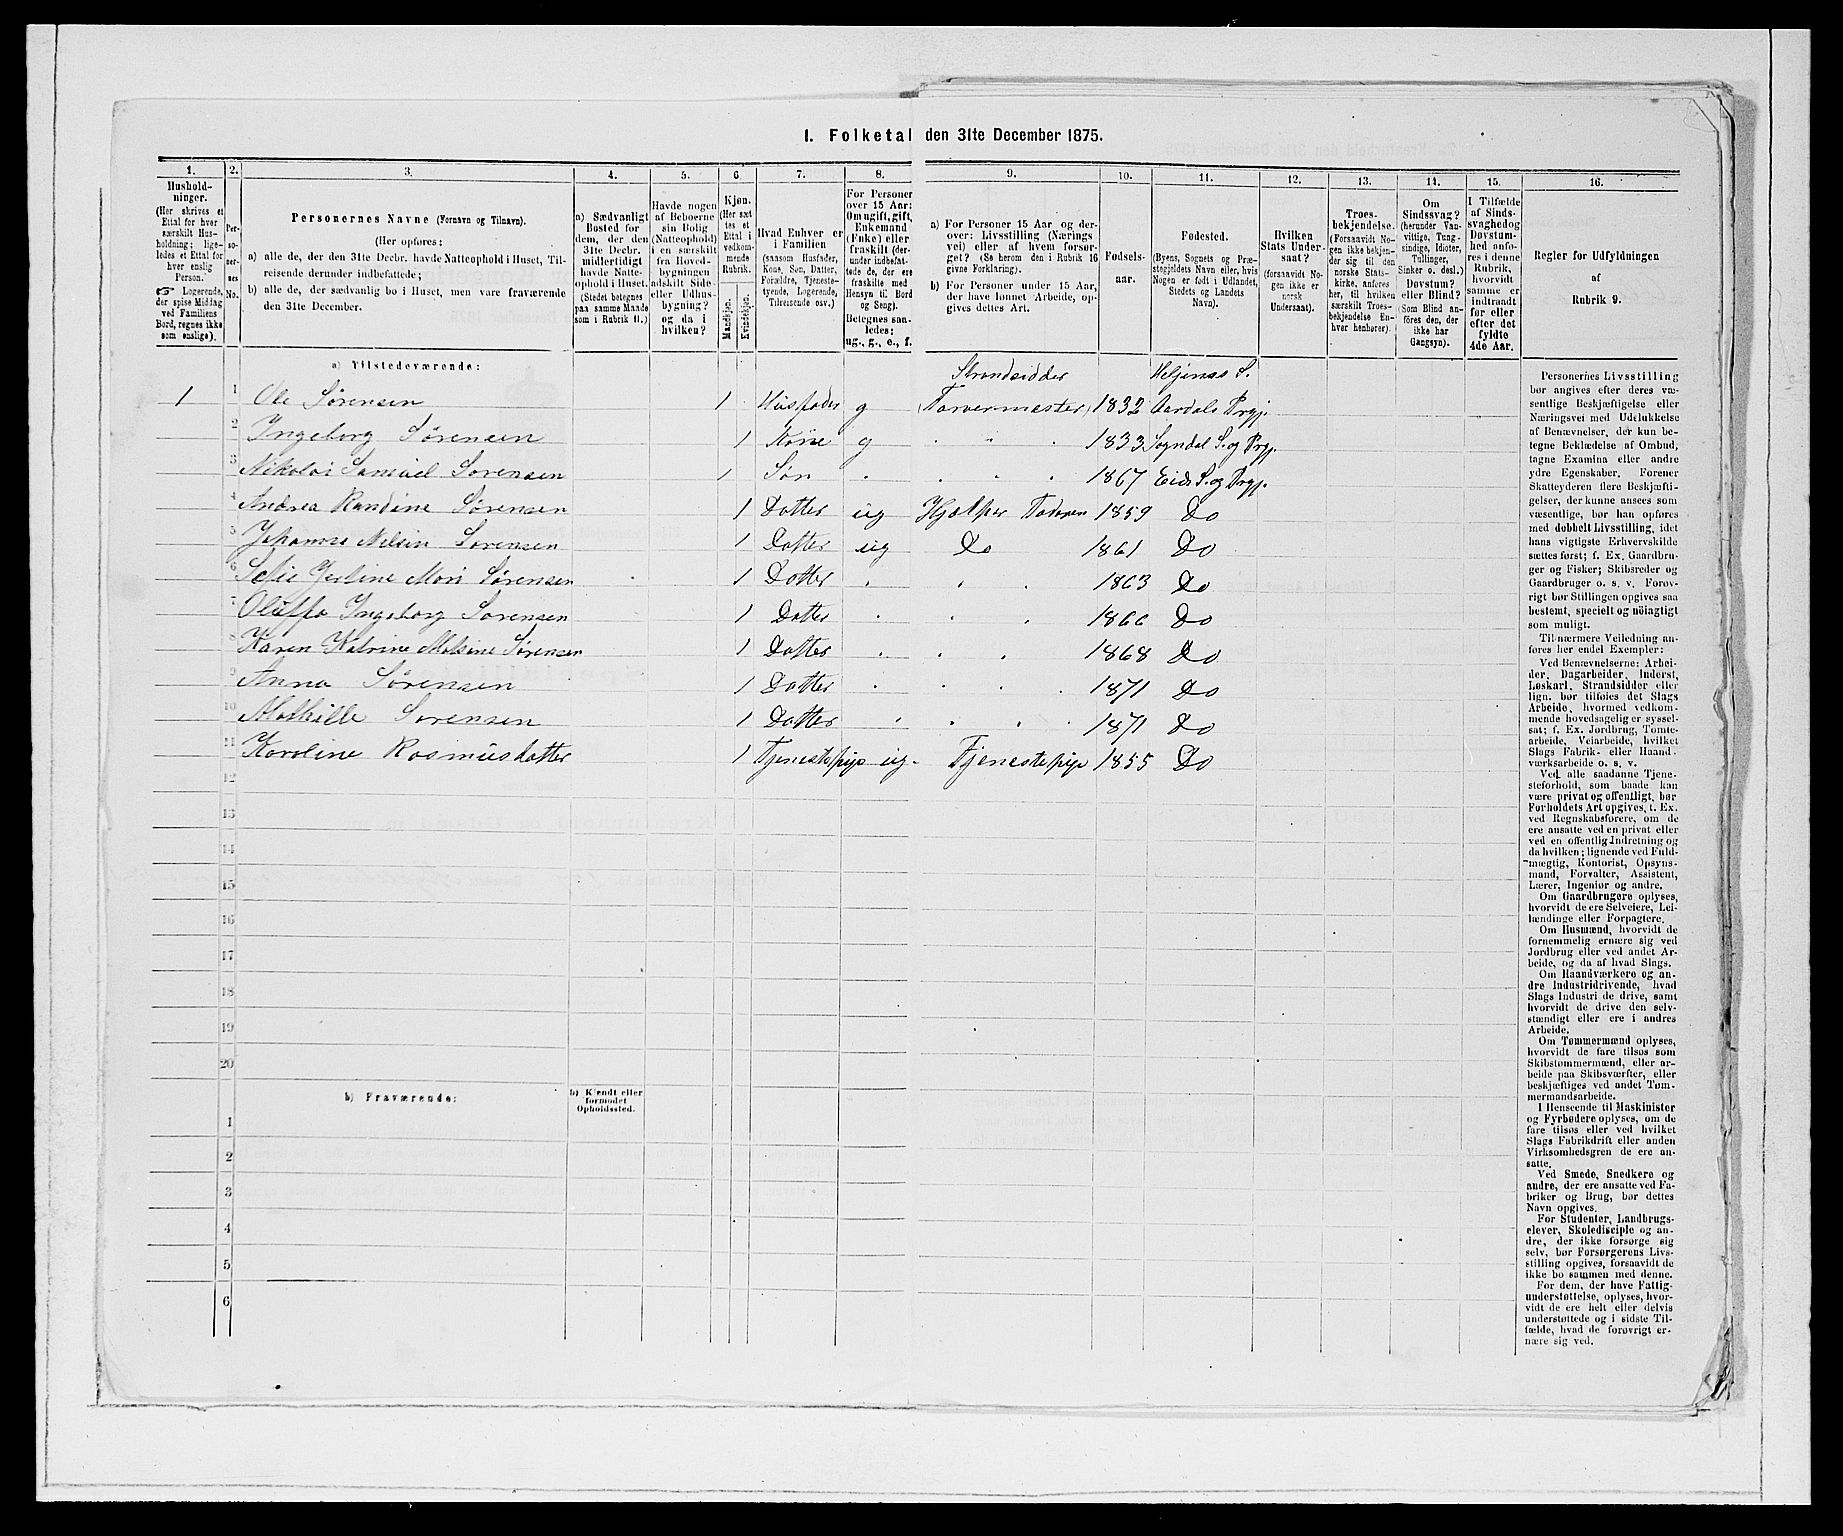 I. Folketal den 31te December 1875.
1. 2. 3. 4. 5. 6. 7. 8. 9. 10. 11. 12. 13. 14. 15. 16.
Hushold-
ninger.
(Her skrives et
Ettal for hver
særskilt Hus-
holdning; lige-
ledes et Ettal for
hver enslig
Person.
☞ Logerende,
der spise Middag
ved Familiens
Bord, regnes ikke
som enslige).
Per-
so-
ner-
nes
No.
Personernes Navne (Fornavn og Tilnavn).
(Her opføres:
a) alle de, der den 31te Decbr. havde Natteophold i Huset, Til-
reisende derunder indbefattede;
b) alle de, der sædvanlig bo i Huset, men vare fraværende
den 31te December.
a) Sædvanligt
Bosted for
dem, der den
31te Decbr.
midlertidigt
havde Natte-
ophold i Huset.
(Stedet betegnes
paa samme Maade
som i Rubrik 11.)
Havde nogen
af Beboerne
sin Bolig
(Natteophold)
i en særskilt
fra Hoved-
bygningen
adskilt Side-
eller Udhus-
bygning?
og da i
hvilken?
Kjøn.
(Her sæt
tes et
Ettal i
vedkom-
mende
Rubrik.
Mandkjøn.
Kvindekjøn.
Hvad Enhver er
i Familien
(saasom Husfader,
Kone, Søn, Datter,
Forældre, Tjeneste-
tyende, Logerende,
Tilreisende osv.)
For Personer
over 15 Aar:
Om ugift, gift,
Enkemand
(Enke) eller
fraskilt (der-
under indbefat-
tede de, der ere
fraskilte med
Hensyn til Bord
og Seng).
Betegnes saa-
ledes:
ug., g., e., f.
a) For Personer 15 Aar og der-
over: Livsstilling (Nærings
vei) eller af hvem forsør-
get? (Se herom den i Rubrik 16
givne Forklaring).
b) For Personer under 15 Aar,
der have lønnet Arbeide, op-
gives dettes Art.
Fødsels-
aar.
Fødested.
(Byens, Sognets og Præ-
stegjeldets Navn eller, hvis
Nogen er født i Udlandet,
Stedets og Landets
Navn).
Hvilken
Stats Under-
saat?
(forsaavidt No-
gen ikke er
norsk
Undersaat).
Troes-
bekjendelse.
(Forsaavidt No-
gen ikke bekjen-
der sig til den
norske Stats-
kirke, anføres
her, til hvilken
særskilt Troes-
bekjendelse En-
hver henhører).
Om
Sindssvag?
(herunder Van-
vittige, Tung-
sindige, Idioter,
Tullinger,
Sinker o. desl.)
Døvstum?
eller Blind?
(Som Blind an-
føres den, der
ikke har
Gangsyn).
I Tilfælde
af Sinds-
svaghed og
Døvstum-
hed anfø-
res i denne
Rubrik,
hvorvidt
samme er
indtraadt
før eller
efter det
fyldte
4de Aar.
Regler for Udfyldningen
af
Rubrik 9.
a) Tilstedeværende:
Strandsidder
1 1 Ole Sørensen 1 Husfader g (Farvermester) 1832 Aardals Prgj.
2 Ingeborg Sørensen 1 Kone g 1833 Sogndal S. og Prgj.
3 Nikolai Samuel Sørensen 1 Søn 1867 Eids S. og Prgj.
4 Andrea Randine Sørensen 1 Datter ug Hjælper Faderen 1859 Do
5 Sørensen 1 Datter ug Do 1861 Do
6 Sørensen 1 Datter 1863 Do
7 Ingeborg Sørensen 1 Datter 1866 Do
8 Karen Katrine Sørensen 1 Datter 1868 Do
9 Anna Sørensen 1 Datter 1871 Do
10 Mathilde Sørensen 1 Datter 1871 Do
11 Karoline Rasmusdatter 1 Tjenestepige ug. Tjenestepige 1855 Do
12
13
14
15
16
17
18
19
20
b) Fraværende:
b) Kjendt eller
formodet
Opholdssted.
1
2
3
4
5
6
Personernes Livsstilling
bør angives efter deres væ-
sentlige Beskjæftigelse eller
Næringsvei med Udelukkelse
af Benævnelser, der kun be-
tegne Beklædelse af Ombud,
tagne Examina eller andre
ydre Egenskaber. Forener
Skatteyderen flere Beskjæfti-
gelser, der kunne ansees som
væsentlige, bør han opføres
med dobbelt Livsstilling, idet
hans vigtigste Erhvervskilde
sættes først; f. Ex. Gaardbru-
ger og Fisker; Skibsreder og
Gaardbruger o. s. v. Forøv-
rigt bør Stillingen opgives saa
bestemt, specielt og nöiagtigt
som muligt.
Til nærmere Veiledning an-
føres her endel Exempler:
Ved Benævnelserne: Arbei-
der, Dagarbeider, Inderst,
Løskarl, Strandsidder eller
lign. bør tilføies det Slags
Arbeide, hvormed vedkom-
mende hovedsagelig er syssel-
sat; f. Ex. Jordbrug, Tomte-
arbeide, Veiarbeide, hvilket
Slags Fabrik- eller Haand-
værksarbeide o. s. v.
Ved alle saadanne Tjene-
steforhold, som baade kan
være privat og offentligt, bør
Forholdets Art opgives, f. Ex.
ved Regnskabsførere, om de
ere ansatte ved en privat eller
ved en offentlig Indretning og
da hvilken; lignende ved Fuld-
mægtig, Kontorist, Opsyns-
mand, Forvalter, Assistent,
Lærer, Ingeniør og andre.
Om Gaardbrugere oplyses,
hvorvidt de ere Selveiere, Lei-
lændinge eller Forpagtere.
Om Husmænd, hvorvidt de
fornemmelig ernære sig ved
Jordbrug eller ved andet Ar-
beide, og da af hvad Slags.
Om Haandværkere og an-
dre Industridrivende, hvad
Slags Industri de drive, samt
hvorvidt de drive den selv-
stændigt eller ere i andres
Arbeide.
Om Tømmermænd oplyses,
hvorvidt de fare tilsøs som
Skibstømmermænd, eller ar-
beide paa Skibsværfter, eller
beskjæftiges ved andet Tøm-
mermandsarbeide.
I Henseende til Maskinister
og Fyrbødere oplyses, om de
fare tilsøs eller ved hvilket
Slags Fabrikdrift eller anden
Virksomhedsgren de ere an-
satte.
Ved Smede, Snedkere og
andre, der ere ansatte ved Fa-
briker og Brug, bør dettes
Navn opgives.
For Studenter, Landbrugs-
elever, Skoledisciple og an-
dre, der ikke forsørge sig
selv, bør Forsørgerens Livs-
stilling opgives, forsaavidt de
ikke bo sammen med denne.
For dem, der have Fattig-
understøttelse, oplyses, hvor-
vidt de ere helt eller delvis
understøttede og i sidste Til-
fælde, hvad de forøvrigt er-
nære sig ved.